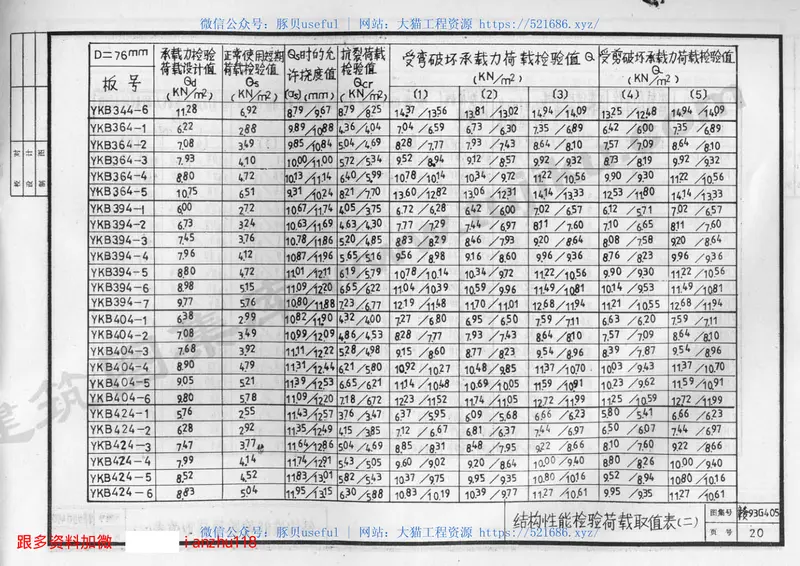 微信公众号：豚贝useful | 网站：大猫工程资源 https://521686.xyz/
D=76mm 承载力检验荷载设计值 Qd (KN/m²) 正常使用短期荷载检验值 Qs (KN/m²) Qs时的允许挠度值 [αs](mm) 抗裂荷载检验值 Qcr (KN/m²) 受弯破坏承载力荷载检验值 Q (KN/m²) 受剪破坏承载力荷载检验值 Q (KN/m²)
板号 (1) (2) (3) (4) (5)
YKB344-6 11.28 6.92 8.79/9.67 8.79/8.25 14.37/13.56 13.81/13.02 14.94/14.09 13.25/12.48 14.94/14.09
YKB364-1 6.22 2.88 9.89/10.88 4.36/4.04 7.04/6.59 6.73/6.30 7.35/6.89 6.42/6.00 7.35/6.89
YKB364-2 7.08 3.49 9.85/10.84 5.04/4.69 8.28/7.77 7.93/7.43 8.64/8.10 7.57/7.09 8.64/8.10
YKB364-3 7.93 4.10 10.00/11.00 5.72/5.34 9.52/8.94 9.12/8.57 9.92/9.32 8.73/8.19 9.92/9.32
YKB364-4 8.80 4.72 10.13/11.14 6.40/5.99 10.78/10.14 10.34/9.72 11.22/10.56 9.90/9.30 11.22/10.56
YKB364-5 10.75 6.51 9.31/10.24 8.21/7.70 13.60/12.82 13.06/12.31 14.14/13.33 12.53/11.80 14.14/13.33
YKB394-1 6.00 2.72 10.67/11.74 4.05/3.75 6.72/6.28 6.42/6.00 7.02/6.57 6.12/5.71 7.02/6.57
YKB394-2 6.73 3.24 10.63/11.69 4.63/4.30 7.77/7.29 7.44/6.97 8.11/7.60 7.10/6.65 8.11/7.60
YKB394-3 7.45 3.76 10.78/11.86 5.20/4.85 8.83/8.29 8.46/7.93 9.20/8.64 8.08/7.58 9.20/8.64
YKB394-4 7.96 4.12 10.87/11.96 5.65/5.16 9.56/8.98 9.16/8.60 9.96/9.36 8.76/8.23 9.96/9.36
YKB394-5 8.80 4.72 11.01/12.11 6.19/5.79 10.78/10.14 10.34/9.72 11.22/10.56 9.90/9.30 11.22/10.56
YKB394-6 8.98 5.15 11.09/12.20 6.65/6.22 11.04/10.39 10.59/9.96 11.49/10.81 10.14/9.53 11.49/10.81
YKB394-7 9.77 5.76 10.80/11.88 7.23/6.77 12.19/11.48 11.70/11.01 12.68/11.94 11.21/10.55 12.68/11.94
YKB404-1 6.38 2.99 10.82/11.90 4.32/4.00 7.27/6.80 6.95/6.50 7.59/7.11 6.63/6.20 7.59/7.11
YKB404-2 7.08 3.49 10.99/12.09 4.86/4.53 8.28/7.77 7.93/7.43 8.64/8.10 7.57/7.09 8.64/8.10
YKB404-3 7.68 3.92 11.11/12.22 5.28/4.98 9.15/8.60 8.77/8.23 9.54/8.96 8.39/7.87 9.54/8.96
YKB404-4 8.90 4.79 11.31/12.44 6.21/5.80 10.92/10.27 10.48/9.85 11.37/10.70 10.03/9.43 11.37/10.70
YKB404-5 9.05 5.21 11.39/12.53 6.65/6.21 11.14/10.48 10.69/10.05 11.59/10.91 10.23/9.62 11.59/10.91
YKB404-6 9.80 5.78 11.09/12.20 7.18/6.72 12.23/11.52 11.74/11.05 12.72/11.99 11.25/10.59 12.72/11.99
YKB424-1 5.76 2.55 11.43/12.57 3.76/3.47 6.37/5.95 6.09/5.68 6.66/6.23 5.80/5.41 6.66/6.23
YKB424-2 6.28 2.92 11.35/12.49 4.15/3.85 7.12/6.67 6.81/6.37 7.44/6.97 6.50/6.07 7.44/6.97
YKB424-3 7.47 3.77 11.64/12.86 5.04/4.69 8.85/8.31 8.48/7.95 9.22/8.66 8.10/7.60 9.22/8.66
YKB424-4 7.99 4.14 11.74/12.91 5.43/5.05 9.60/9.02 9.20/8.64 10.00/9.40 8.80/8.26 10.00/9.40
YKB424-5 8.52 4.52 11.83/13.01 5.82/5.43 10.37/9.75 9.95/9.35 10.80/10.16 9.52/8.94 10.80/10.16
YKB424-6 8.83 5.04 11.95/13.15 6.30/5.88 10.83/10.19 10.39/9.77 11.27/10.61 9.95/9.35 11.27/10.61
校 对
设 计
制 图
结构性能检验荷载取值表(二) 图集号 赣93G405
页号 20
微信公众号：豚贝useful | 网站：大猫工程资源 https://521686.xyz/
跟多资料加微 ianzhu118